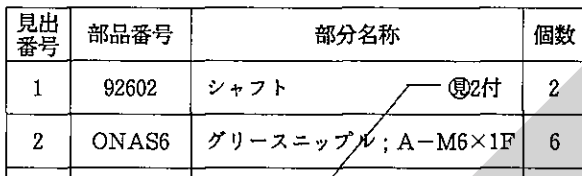 見出番号 部品番号 部分名称 個数
1 92602 シャフト ㊞2付 2
2 ONAS6 グリースニップル；A－M6×1F 6